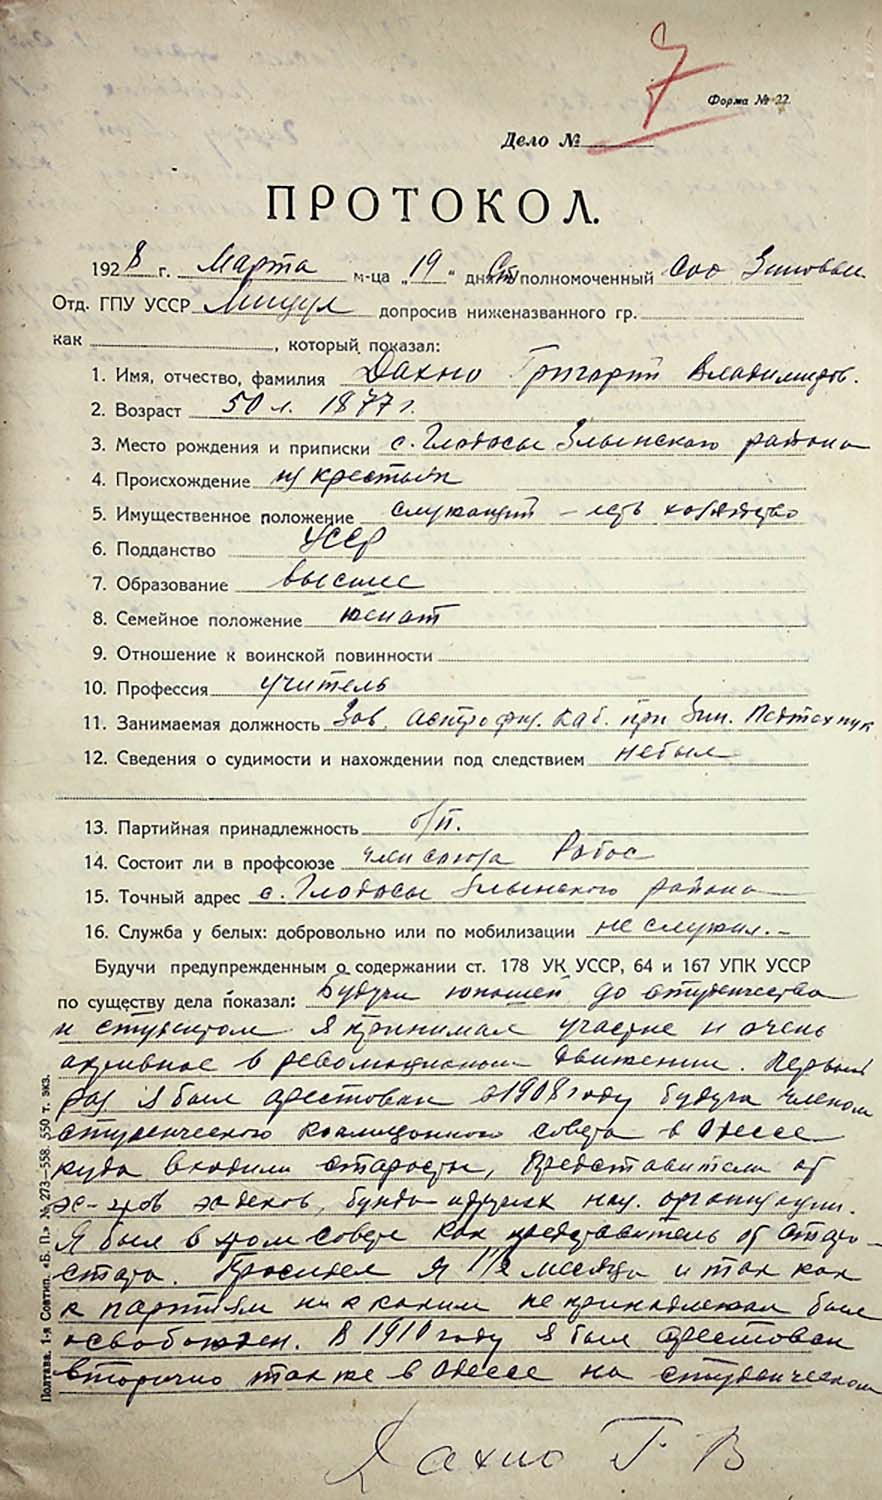 7
Форма № 22.
Дело №
ПРОТОКОЛ.
1928 г. Марта м-ца „19“ дня Ст. уполномоченный Соо Зиновьев.
Отд. ГПУ УССР Мицул допросив ниженазванного гр.
как , который показал:
1. Имя, отчество, фамилия Дахно Григорий Владимиров.
2. Возраст 50 л. 1877 г.
3. Место рождения и приписки с. Глодосы Злынского района
4. Происхождение из крестьян
5. Имущественное положение служащий – есть хозяйство
6. Подданство УССР
7. Образование высшее
8. Семейное положение женат
9. Отношение к воинской повинности
10. Профессия учитель
11. Занимаемая должность Зав. астрофиз. каб. при Зин. Педтехник
12. Сведения о судимости и нахождении под следствием небыл
13. Партийная принадлежность б/п.
14. Состоит ли в профсоюзе член союза Рабос
15. Точный адрес с. Глодосы Злынского района
16. Служба у белых: добровольно или по мобилизации не служил. –
Будучи предупрежденным о содержании ст. 178 УК УССР, 64 и 167 УПК УССР
по существу дела показал: Будучи юношей до студенчества
и студентом я принимал участие и очень
активное в революционном движении. Первый
раз я был арестован в 1908 году будучи членом
студенческого коалиционного совета в Одессе
куда входили старосты, представители от
эс-эров эсдеков, бунда и других организации.
Я был в этом совете как представитель от старо-
стата. Просидел я месяца и так как
к партиям ни к каким не принадлежал был
освобожден. В 1910 году я был арестован
вторично также в Одессе на студенческом
Дахно Г. В
Полтава. 1-я Совтип. «Б. П.» № 273—558. 550 т. экз.